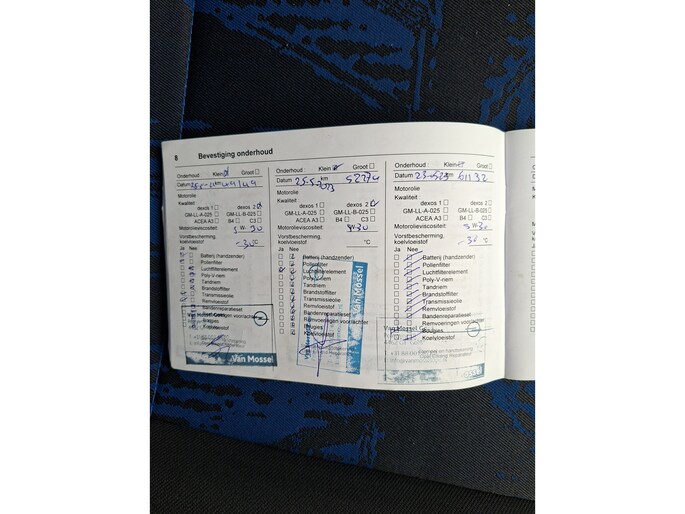 8 Bevestiging onderhoud
Onderhoud : Klein Groot
Datum km
Motorolie
Kwaliteit :
dexos 1 dexos 2
GM-LL-A-025 GM-LL-B-025
ACEA A3 B4 C3
Motorolieviscositeit:
Vorstbescherming,
koelvloeistof -30°C
Ja Nee
Batterij (handzender)
Pollenfilter
Luchtfilterelement
Poly-V-riem
Tandriem
Brandstoffilter
Transmissieolie
Remvloeistof
Bandenreparatieset
Koelvloeistof
Van Mossel
Onderhoud : Klein Groot
Datum 25-5-2013 km 52774
Motorolie
Kwaliteit :
dexos 1 dexos 2
GM-LL-A-025 GM-LL-B-025
ACEA A3 B4 C3
Motorolieviscositeit: W-30
Vorstbescherming,
koelvloeistof °C
Ja Nee
Batterij (handzender)
Pollenfilter
Luchtfilterelement
Poly-V-riem
Tandriem
Brandstoffilter
Transmissieolie
Remvloeistof
Bandenreparatieset
Remvoeringen voor/achter
Bougies
Koelvloeistof
Van Mossel
Onderhoud : Klein Groot
Datum km 61132
Motorolie
Kwaliteit :
dexos 1 dexos 2
GM-LL-A-025 GM-LL-B-025
ACEA A3 B4 C3
Motorolieviscositeit: 5W30
Vorstbescherming,
koelvloeistof -30 °C
Ja Nee
Batterij (handzender)
Pollenfilter
Luchtfilterelement
Poly-V-riem
Tandriem
Brandstoffilter
Transmissieolie
Remvloeistof
Bandenreparatieset
Remvoeringen voor/achter
Bougies
Koelvloeistof
Van Mossel